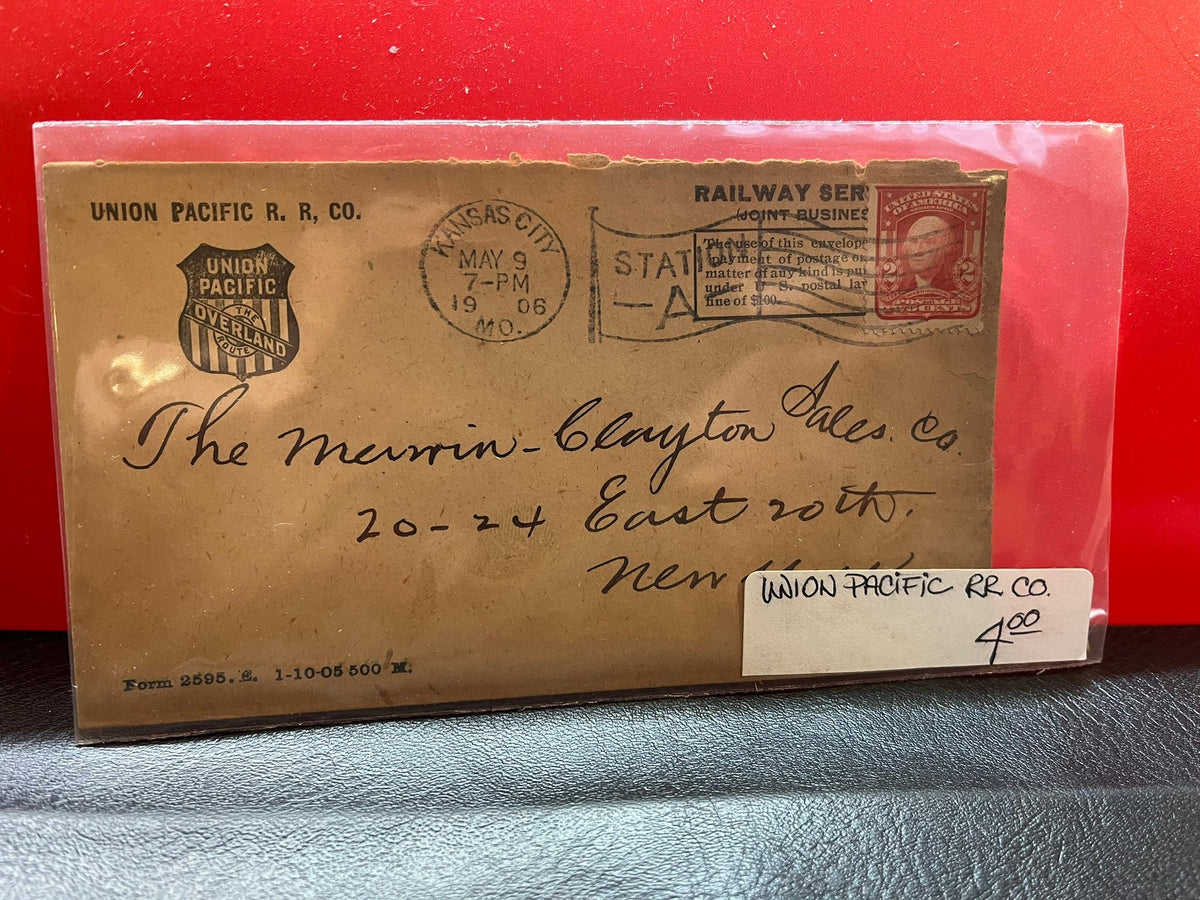 UNION PACIFIC R. R, CO.
UNION
PACIFIC
THE
OVERLAND
ROUTE
KANSAS CITY
MAY 9
7-PM
19 06
MO.
STATION
A
RAILWAY SER
(JOINT BUSINES
The use of this envelope
payment of postage on
matter of any kind is pun
under U. S. postal law
fine of $100.
UNITED STATES
OF AMERICA
2 2
TWO CENTS
The Merwin-Clayton Sales. Co.
20-24 East 20th.
New
UNION PACIFIC RR CO.
4 00
Form 2595. E. 1-10-05 500 M.